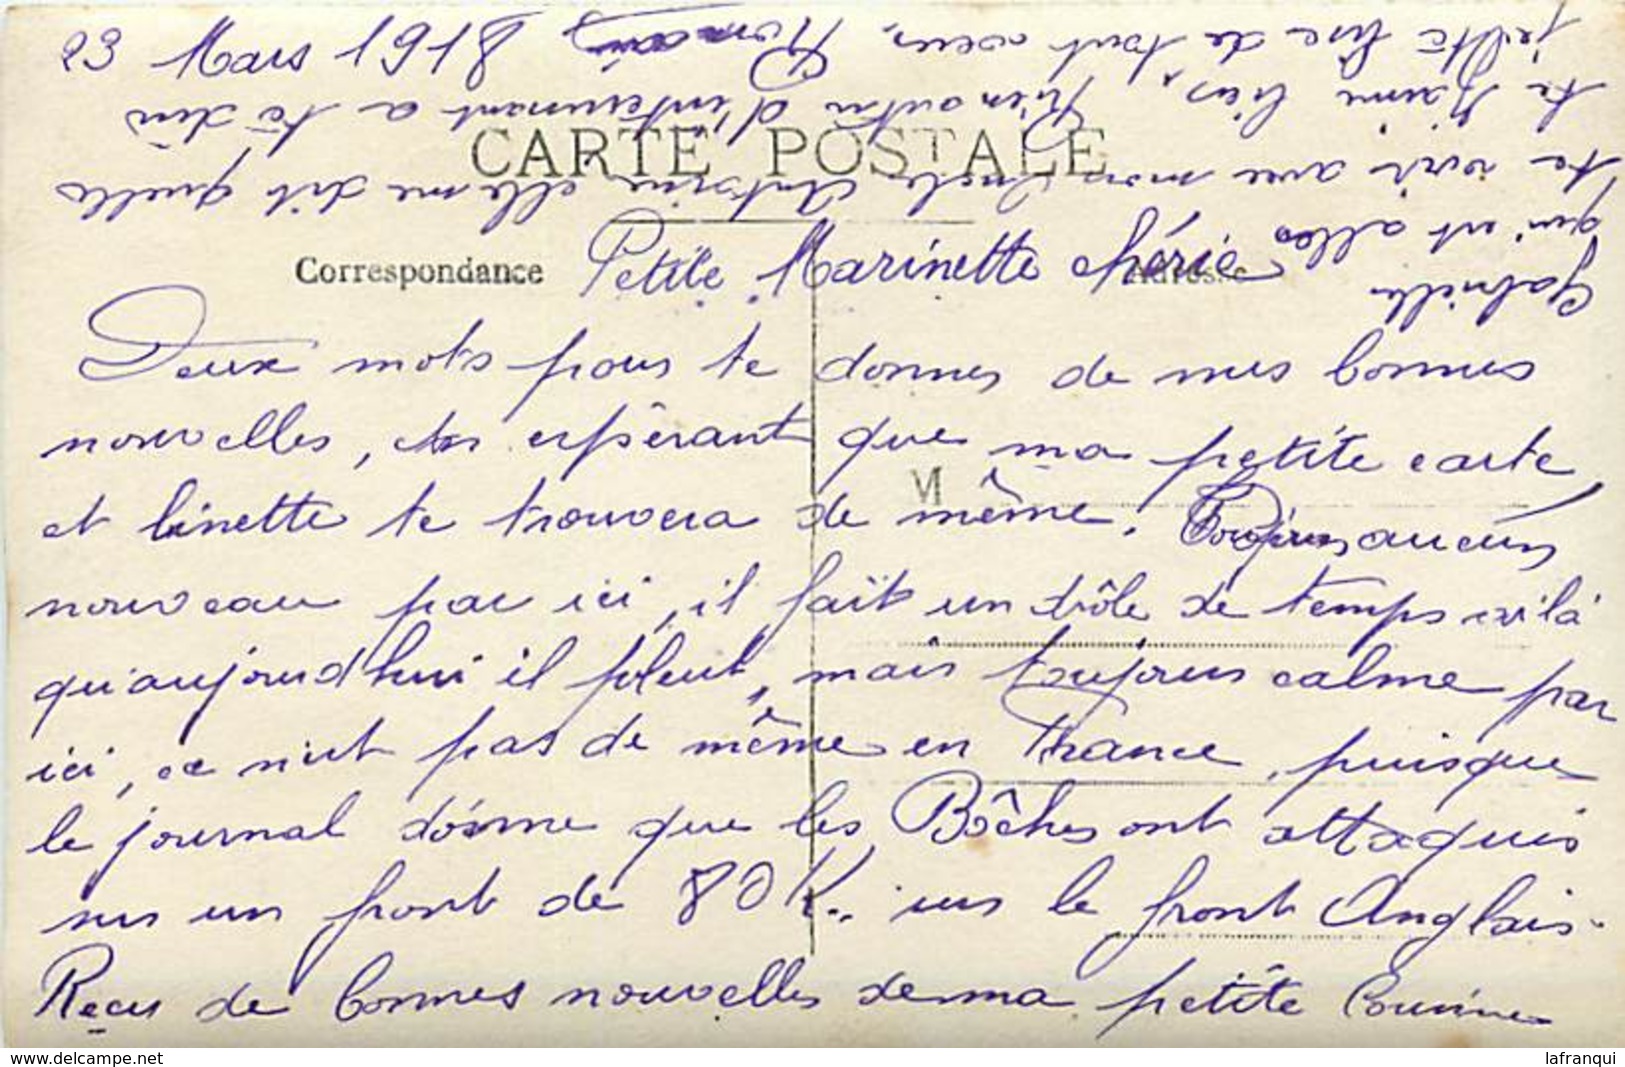 23 Mars 1918
CARTE POSTALE
Correspondance
Adresse
Petite Marinette chérie
Deux mots pour te donner de mes bonnes
nouvelles, en espérant que ma petite carte
et binette te trouvera de même. Toujours aucun
nouveau par ici, il fait un drôle de temps voilà
qu'aujourd'hui il pleut, mais toujours calme par
ici, ce n'est pas de même en France, puisque
le journal donne que les Bôches ont attaqués
sur un front de 80 K.. sur le front Anglais.
Reçu de bonnes nouvelles de ma petite Cousine
Gabrielle
qu'est allée
te voir avec mon oncle Antoine elle me dit quelle
te n'aime bien, Rien autre d'intéressant a te dire
je te bise de tout cœur, Romain
M
www.delcampe.net
lafranqui